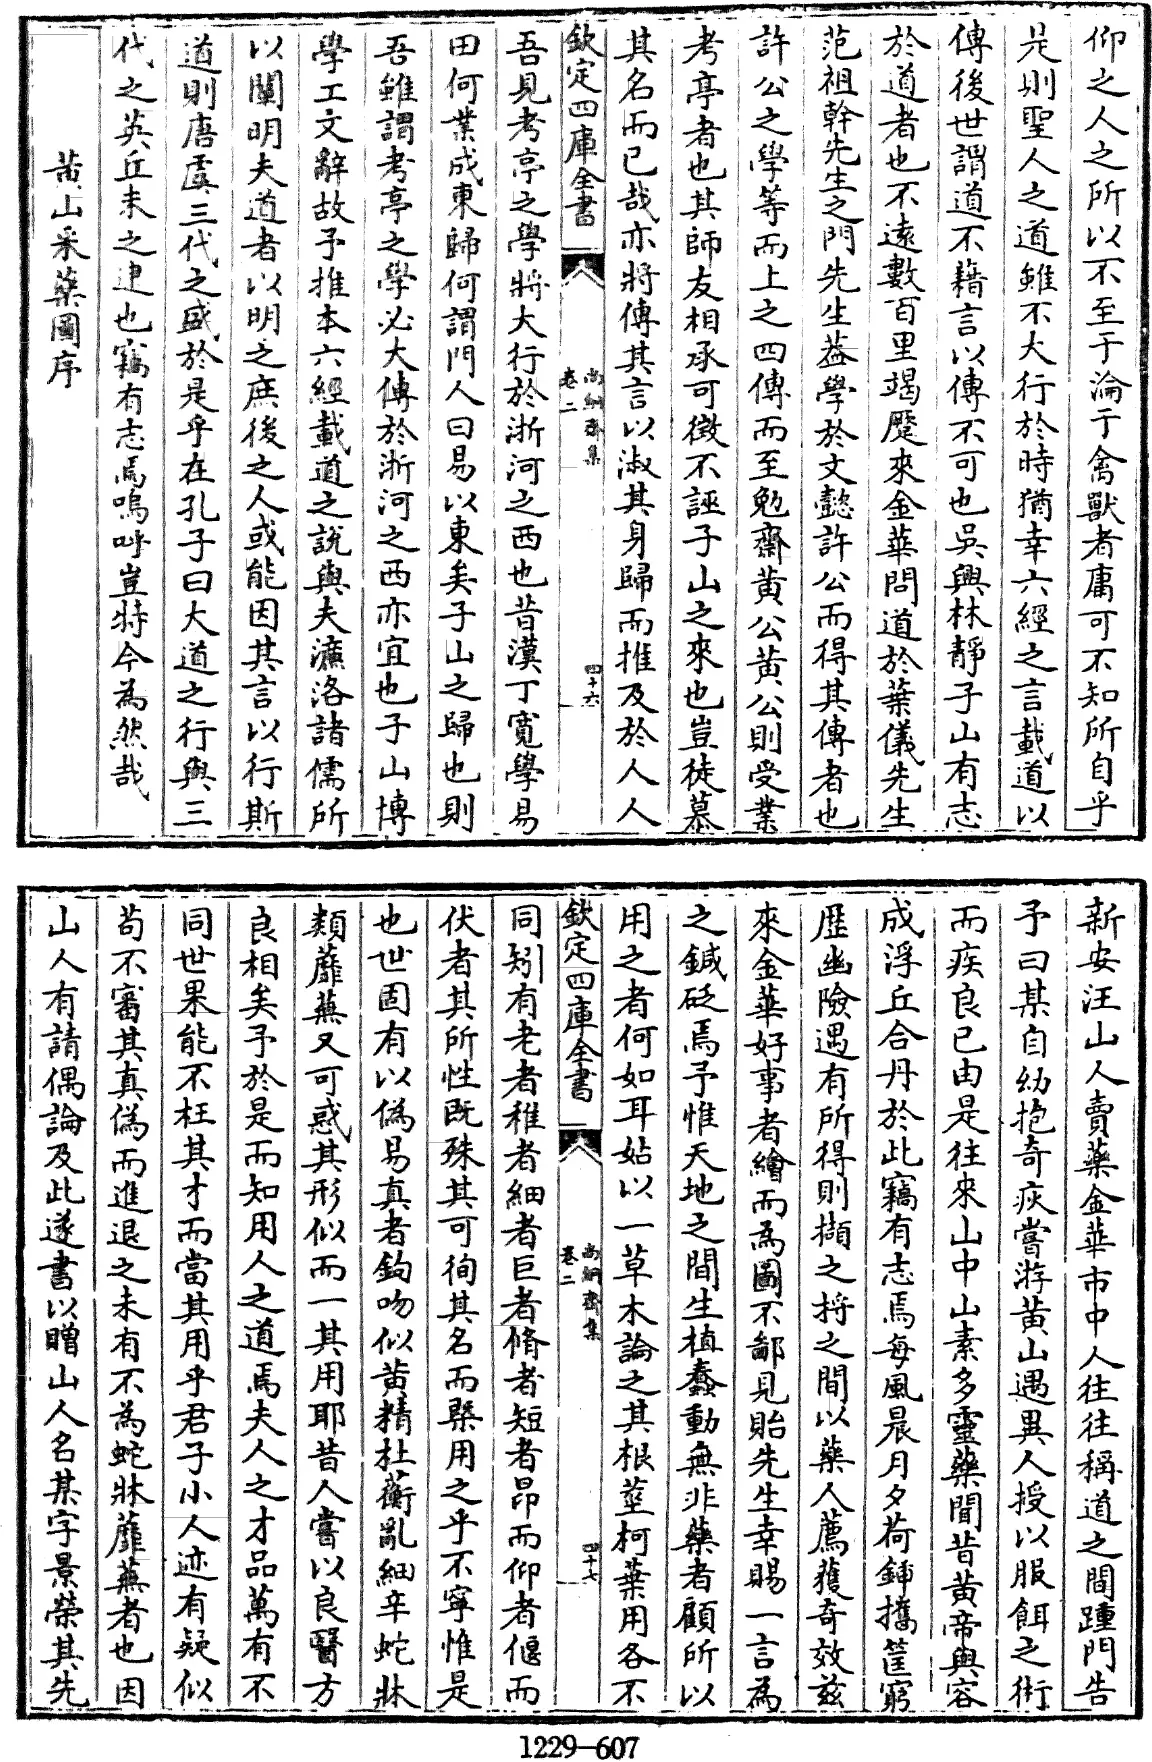 仰之人之所以不至于淪于禽獸者庸可不知所自乎
是則聖人之道雖不大行於時猶幸六經之言載道以
傳後世謂道不藉言以傳不可也吳興林靜子山有志
於道者也不遠數百里竭蹷來金華問道於葉儀先生
范祖幹先生之門先生葢學於文懿許公而得其傳者也
許公之學等而上之四傳而至勉齋黄公黄公則受業
考亭者也其師友相承可徵不誣子山之來也豈徒慕
其名而已哉亦將傳其言以淑其身歸而推及於人人
欽定四庫全書
尚絅齋集
卷二
四十六
吾見考亭之學將大行於浙河之西也昔漢丁寛學易
田何業成東歸何謂門人曰易以東矣子山之歸也則
吾雖謂考亭之學必大傳於浙河之西亦宜也子山博
學工文辭故予推本六經載道之說與夫濂洛諸儒所
以闡明夫道者以明之庶後之人或能因其言以行斯
道則唐虞三代之盛於是乎在孔子曰大道之行與三
代之英丘未之逮也竊有志焉嗚呼豈特今為然哉
黄山采藥圖序
新安汪山人賣藥金華市中人往往稱道之間踵門告
予曰某自幼抱竒疾嘗游黄山遇異人授以服餌之術
而疾良已由是往來山中山素多靈藥聞昔黄帝與容
成浮丘合丹於此竊有志焉每風晨月夕荷鍤擕筐窮
歴幽險遇有所得則擷之捋之間以藥人薦獲竒效兹
來金華好事者繪而為圖不鄙見貽先生幸賜一言為
之鍼砭焉予惟天地之間生植蠢動無非藥者顧所以
用之者何如耳姑以一草木論之其根莖柯葉用各不
欽定四庫全書
尚絅齋集
卷二
四十七
同矧有老者稚者細者巨者脩者短者昂而仰者偃而
伏者其所性既殊其可徇其名而槩用之乎不寧惟是
也世固有以偽易真者鈎吻似黄精杜蘅亂細辛蛇牀
類蘼蕪又可惑其形似而一其用耶昔人嘗以良醫方
良相矣予於是而知用人之道焉夫人之才品萬有不
同世果能不枉其才而當其用乎君子小人迹有疑似
苟不審其真偽而進退之未有不為蛇牀蘼蕪者也因
山人有請偶論及此遂書以贈山人名某字景榮其先
1229—607